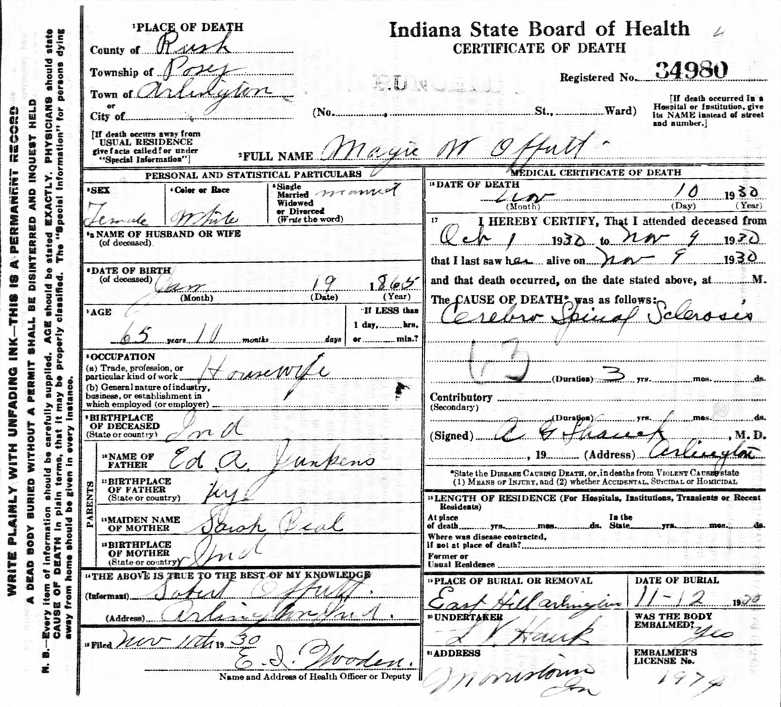 Indiana State Board of Health
CERTIFICATE OF DEATH
Registered No. 34980
¹PLACE OF DEATH
County of Rush
Township of Posey
Town of Arlington
or
City of
(No. St., Ward)
[If death occurred in a Hospital or Institution, give its NAME instead of street and number.]
[If death occurs away from USUAL RESIDENCE give facts called for under "Special Information"]
²FULL NAME Mayie W Offutt
PERSONAL AND STATISTICAL PARTICULARS
³SEX
Female
⁴Color or Race
White
⁵Single
Married
Widowed
or Divorced
(Write the word)
married
NAME OF HUSBAND OR WIFE
(of deceased)
⁶DATE OF BIRTH
(of deceased)
Jan 19 1865
(Month) (Date) (Year)
⁷AGE
65 years 10 months days
If LESS than
1 day, hrs.
or min.?
⁸OCCUPATION
(a) Trade, profession, or
particular kind of work Housewife
(b) General nature of industry,
business, or establishment in
which employed (or employer)
⁹BIRTHPLACE
OF DECEASED
(State or country) Ind
PARENTS
¹⁰NAME OF
FATHER Ed A. Junkens
¹¹BIRTHPLACE
OF FATHER
(State or country) Ky
¹²MAIDEN NAME
OF MOTHER Sarah Beal
¹³BIRTHPLACE
OF MOTHER
(State or country) Ind
¹⁴THE ABOVE IS TRUE TO THE BEST OF MY KNOWLEDGE
(Informant) Robert Offutt
(Address) Arlington Ind.
¹⁵Filed Nov 10th 1930
E. I. Wooden.
Name and Address of Health Officer or Deputy
MEDICAL CERTIFICATE OF DEATH
¹⁶DATE OF DEATH
Nov 10 1930
(Month) (Day) (Year)
¹⁷ I HEREBY CERTIFY, That I attended deceased from
Oct 1 1930 to Nov 9 1930
that I last saw her alive on Nov 9 1930
and that death occurred, on the date stated above, at M.
The CAUSE OF DEATH* was as follows:
Cerebro Spinal Sclerosis
(Duration) 3 yrs. mos. ds.
Contributory
(Secondary)
(Duration) yrs. mos. ds.
(Signed) A G Shauck, M. D.
, 19 (Address) Arlington
*State the DISEASE CAUSING DEATH, or, in deaths from VIOLENT CAUSES state
(1) MEANS OF INJURY, and (2) whether ACCIDENTAL, SUICIDAL or HOMICIDAL
¹⁸LENGTH OF RESIDENCE (For Hospitals, Institutions, Transients or Recent
Residents)
At place
of death yrs. mos. ds.
In the
State yrs. mos. ds.
Where was disease contracted,
if not at place of death?
Former or
Usual Residence
¹⁹PLACE OF BURIAL OR REMOVAL
East Hill Arlington
DATE OF BURIAL
11-12 1930
²⁰UNDERTAKER
Hauk
WAS THE BODY
EMBALMED? Yes
²¹ADDRESS
Morristown
In
EMBALMER'S
LICENSE No.
1974
WRITE PLAINLY WITH UNFADING INK—THIS IS A PERMANENT RECORD
A DEAD BODY BURIED WITHOUT A PERMIT SHALL BE DISINTERRED AND INQUEST HELD
N. B.—Every item of information should be carefully supplied. AGE should be stated EXACTLY. PHYSICIANS should state
CAUSE OF DEATH in plain terms, that it may be properly classified. The "Special Information" for persons dying
away from home should be given in every instance.